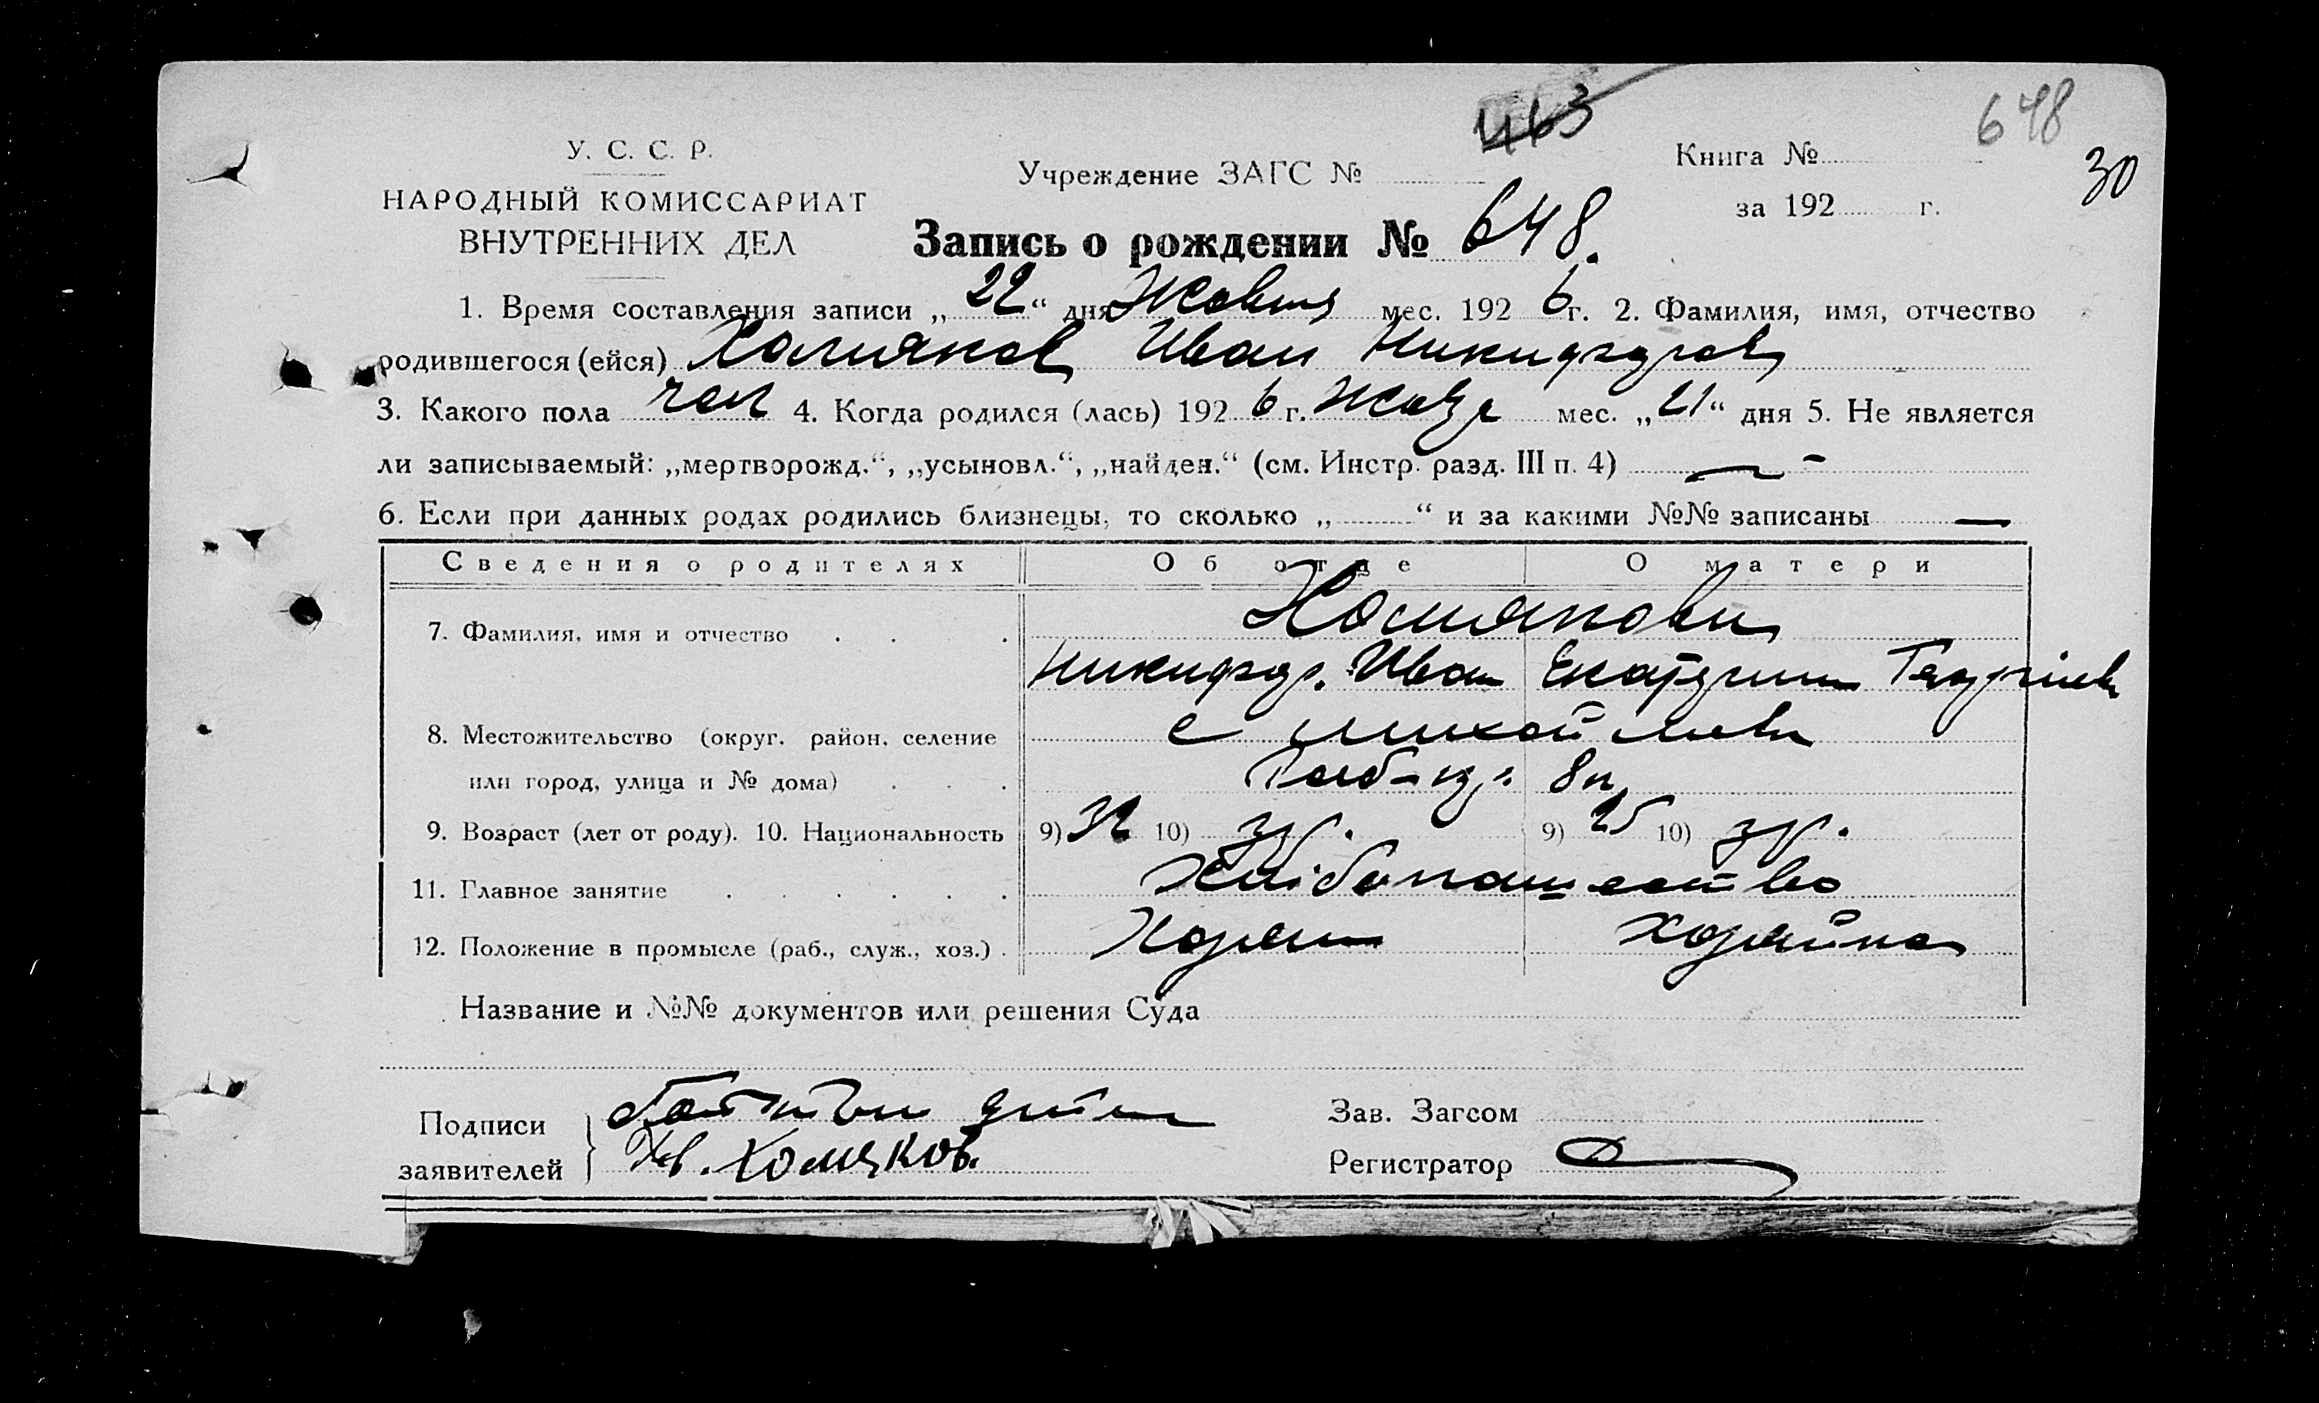 648
463
30
У. С. С. Р.
НАРОДНЫЙ КОМИССАРИАТ
ВНУТРЕННИХ ДЕЛ
Учреждение ЗАГС №
Книга №
за 192 г.
Запись о рождении № 648.
1. Время составления записи „22“ дня Жовтня мес. 192 6 г. 2. Фамилия, имя, отчество
родившегося (ейся) Хомяков Иван Никифоров
3. Какого пола чол 4. Когда родился (лась) 192 6 г. мес. „21“ дня 5. Не является
ли записываемый: „мертворожд.“, „усыновл.“, „найден.“ (см. Инстр. разд. III п. 4) —
6. Если при данных родах родились близнецы, то сколько „ “ и за какими №№ записаны —
Сведения о родителях Об отце О матери
7. Фамилия, имя и отчество Хомякови
Никифор Иван Екатерина
8. Местожительство (округ. район. селение с
или город, улица и № дома)
9. Возраст (лет от роду). 10. Национальность 9) 32 10) 9) 25 10)
11. Главное занятие Хлібопашество
12. Положение в промысле (раб., служ., хоз.) Хозяин Хозяйка
Название и №№ документов или решения Суда
Подписи
заявителей Хомяков.
Зав. Загсом
Регистратор